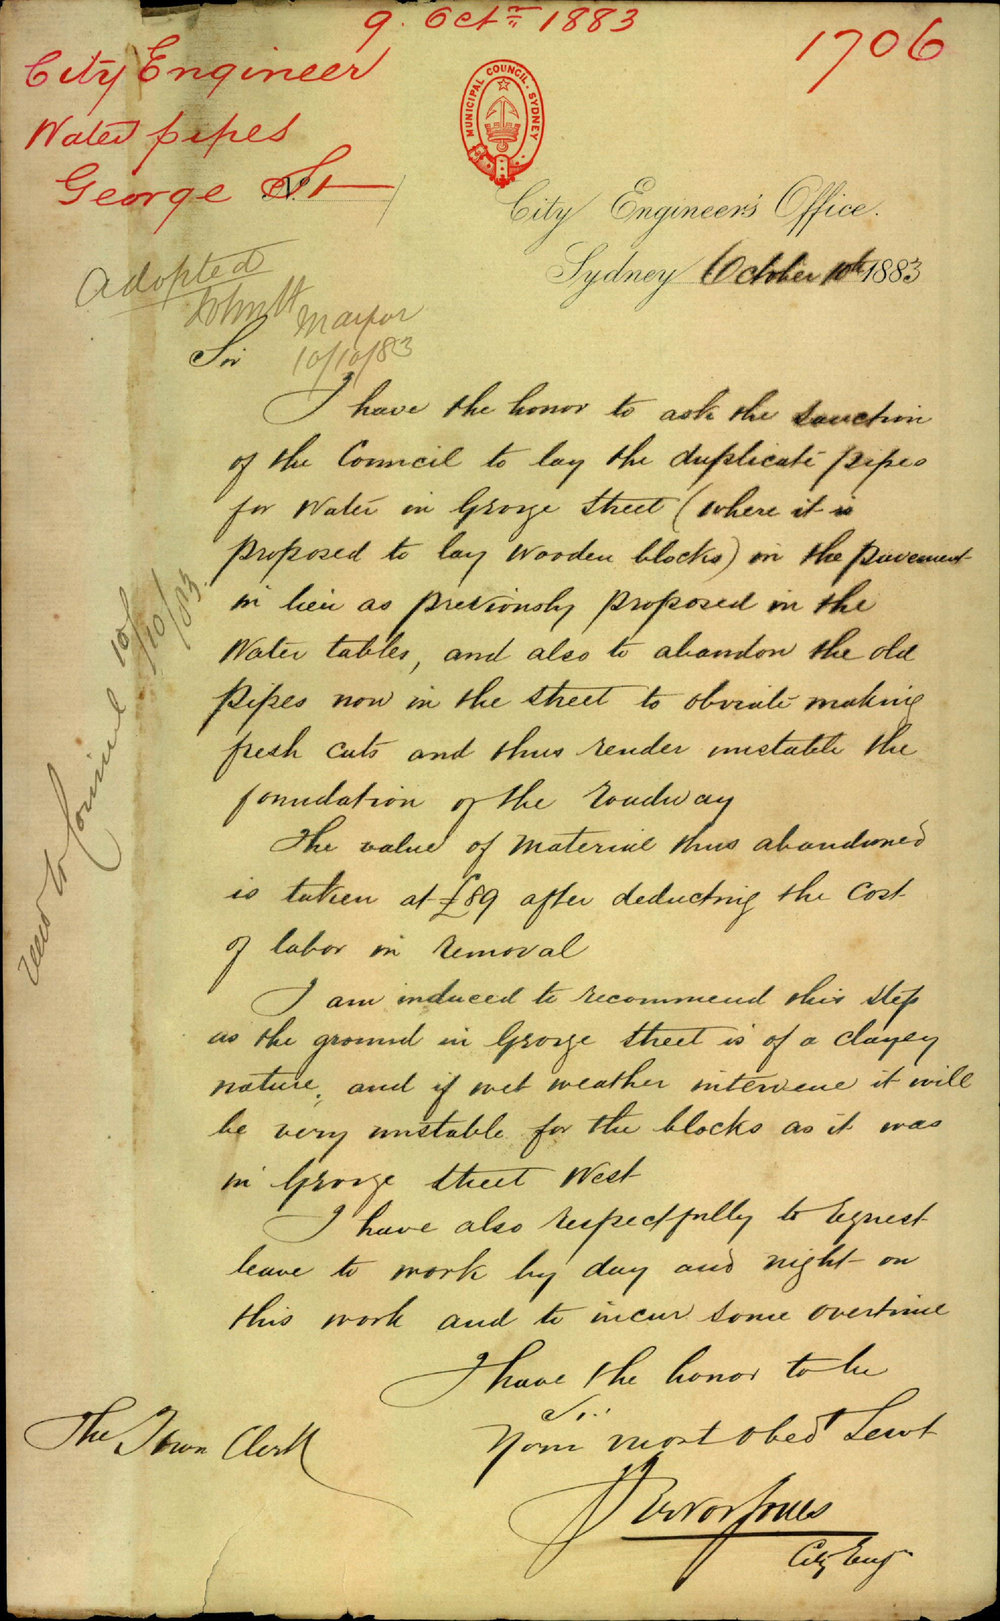 9. Octr 1883
1706
City Engineer
Water pipes
George St
MUNICIPAL COUNCIL. SYDNEY
City Engineer's Office.
Sydney October 10th 1883
Adopted
Mayor
10/10/83
Sir
I have the honor to ask the sanction
of the Council to lay the duplicate pipes
for Water in George Street (where it is
proposed to lay Wooden blocks) in the pavement
in lieu as previously proposed in the
Water tables, and also to abandon the old
pipes now in the street to obviate making
fresh cuts and thus render unstable the
foundation of the roadway
The value of Material thus abandoned
is taken at £89 after deducting the cost
of labor in removal
I am induced to recommend this step
as the ground in George Street is of a clayey
nature, and if wet weather intervene it will
be very unstable for the blocks as it was
in George Street West
I have also respectfully to request
leave to work by day and night on
this work and to incur some overtime
I have the honor to be
Sir
Your most obed Servt
Trevor Jones
City Engr
The Town Clerk
to Council 10/10/83